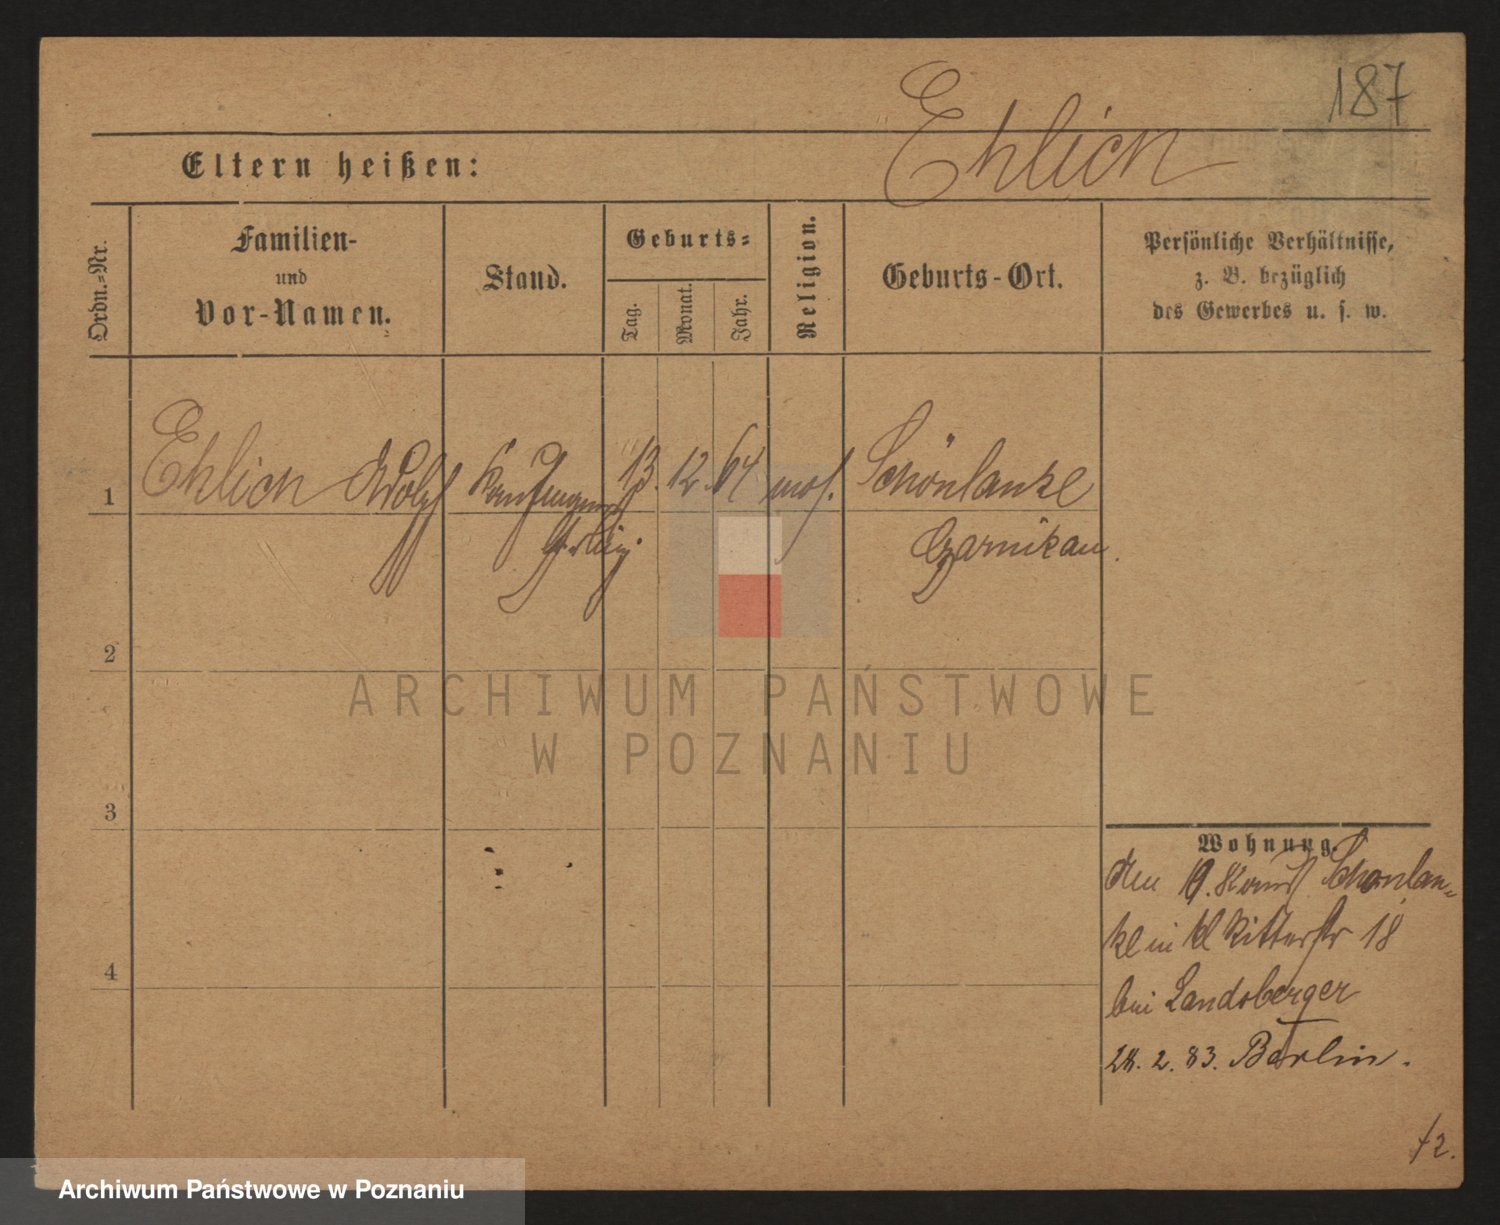 187
Ehlich
Eltern heißen:
Ordn.-Nr.
Familien-
und
Vor-Namen.
Stand.
Geburts-
Tag.
Monat.
Jahr.
Religion.
Geburts-Ort.
Persönliche Verhältnisse,
z. B. bezüglich
des Gewerbes u. s. w.
1
Ehlich Adolf
Kaufmanns
13. 12. 64
mos.
Schönlanke
Czarnikau.
2
3
4
Wohnung.
Schönlan-
ke in kl Ritterstr 18
bei Landsberger
28. 2. 83. Berlin.
72.
ARCHIWUM PAŃSTWOWE
W POZNANIU
Archiwum Państwowe w Poznaniu